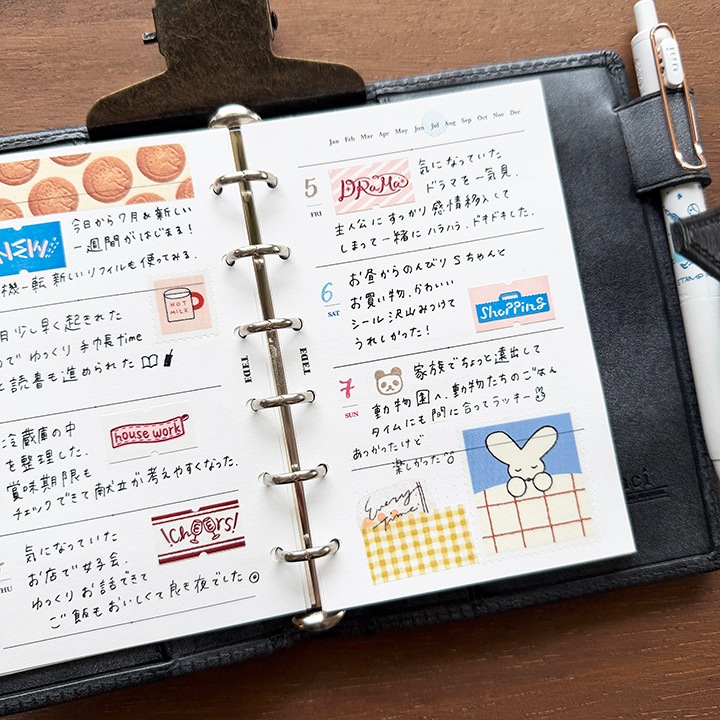 NEW
今日から7月&新しい
一週間がはじまる!
機一転 新しいリフィルも使ってみる.
HOT
MILK
日少し早く起きれた
で ゆっくり 手帳time
と読書も進められた
house work
冷蔵庫の中
を整理した.
賞味期限も
チェックできて献立が考えやすくなった.
Cheers!
THU
気になっていた
お店で女子会.
ゆっくりお話できて
ご飯もおいしくて良き夜でした
Jan Feb Mar Apr May Jun Jul Aug Sep Oct Nov Dec
5
FRI
DRaMa
気になっていた
ドラマを一気見.
主人公にすっかり感情移入して
しまって一緒にハラハラ、ドキドキした.
6
SAT
お昼からのんびりSちゃんと
お買い物.かわいい
シール沢山みつけて
うれしかった!
Shopping
7
SUN
家族でちょっと遠出して
動物園へ.動物たちのごはん
タイムにも間に合ってラッキー
あつかったけど
楽しかった
Every
Time